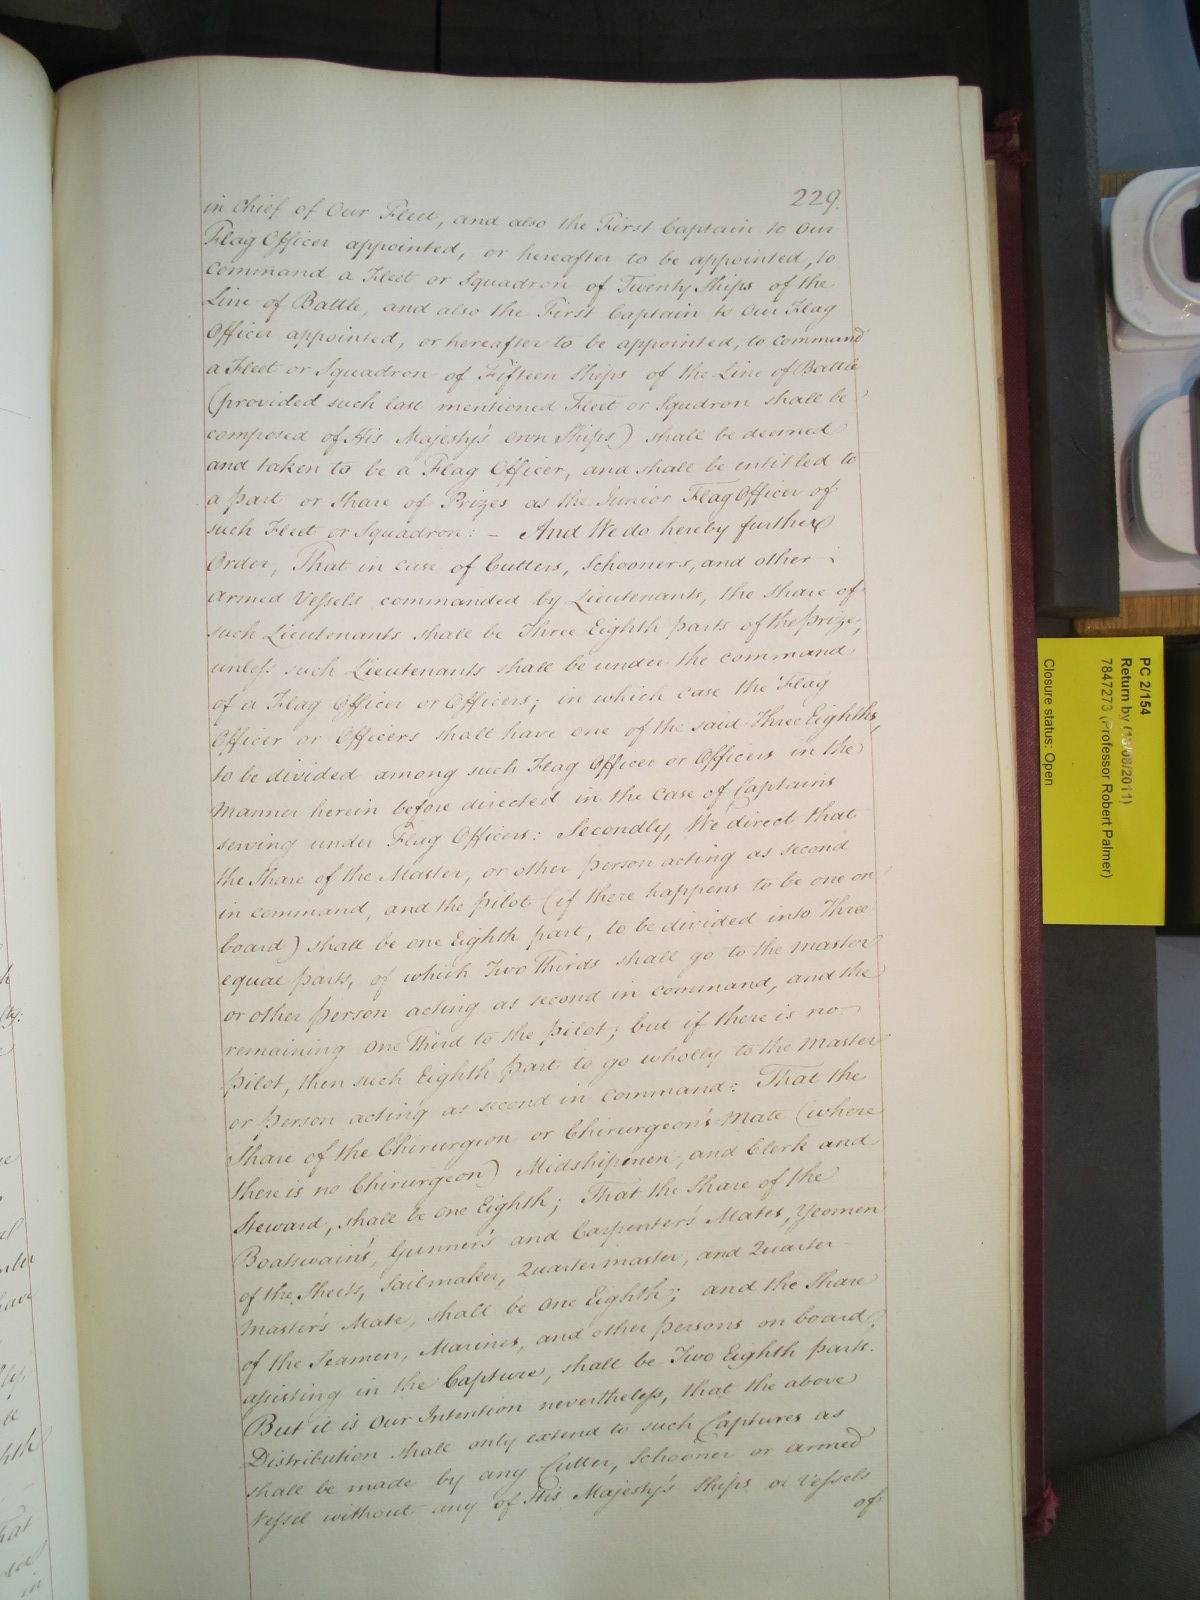 229.
in Chief of Our Fleet, and also the First Captain to Our
Flag Officer appointed, or hereafter to be appointed, to
command a Fleet or Squadron of Twenty Ships of the
Line of Battle, and also the First Captain to Our Flag
Officer appointed, or hereafter to be appointed, to command
a Fleet or Squadron of Fifteen Ships of the Line of Battle
(provided such last mentioned Fleet or Squdron shall be
composed of His Majesty's own Ships) shall be deemed
and taken to be a Flag Officer, and shall be entitled to
a part or share of Prizes as the Junior Flag Officer of
such Fleet or Squadron: - And We do hereby further
Order, That in case of Cutters, Schooners, and other
armed Vessels commanded by Lieutenants, the Share of
such Lieutenants shall be Three Eighth parts of the prize,
unless such Lieutenants shall be under the command
of a Flag Officer or Officers; in which case the Flag
Officer or Officers shall have one of the said Three Eighths,
to be divided among such Flag Officer or Officers in the
manner herein before directed in the case of Captains
serving under Flag Officers: Secondly, We direct that
the Share of the Master, or other person acting as second
in command, and the pilot (if there happens to be one on
board) shall be one Eighth part, to be divided into Three
equal parts, of which Two Thirds shall go to the master
or other person acting as second in command, and the
remaining one Third to the pilot; but if there is no
pilot, then such Eighth part to go wholly to the master
or person acting as second in command: That the
Share of the Chirurgeon or Chirurgeon's-Mate (where
there is no Chirurgeon) Midshipmen, and Clerk and
Steward, shall be one Eighth; That the Share of the
Boatswain's, Gunner's and Carpenter's Mates, Yeomen
of the Sheets, Sailmaker, Quartermaster, and Quarter
master's Mate, shall be one Eighth; and the Share
of the Seamen, Marines, and other persons on board
assisting in the Capture, shall be Two Eighth parts.
But it is Our Intention nevertheless, that the above
Distribution shall only extend to such Captures as
shall be made by any Cutter, Schooner or armed
Vessel without any of His Majesty's Ships or Vessels
of
PC 2/154
Return by (13/08/2011)
7847273 (Professor Robert Palmer)
Closure status: Open